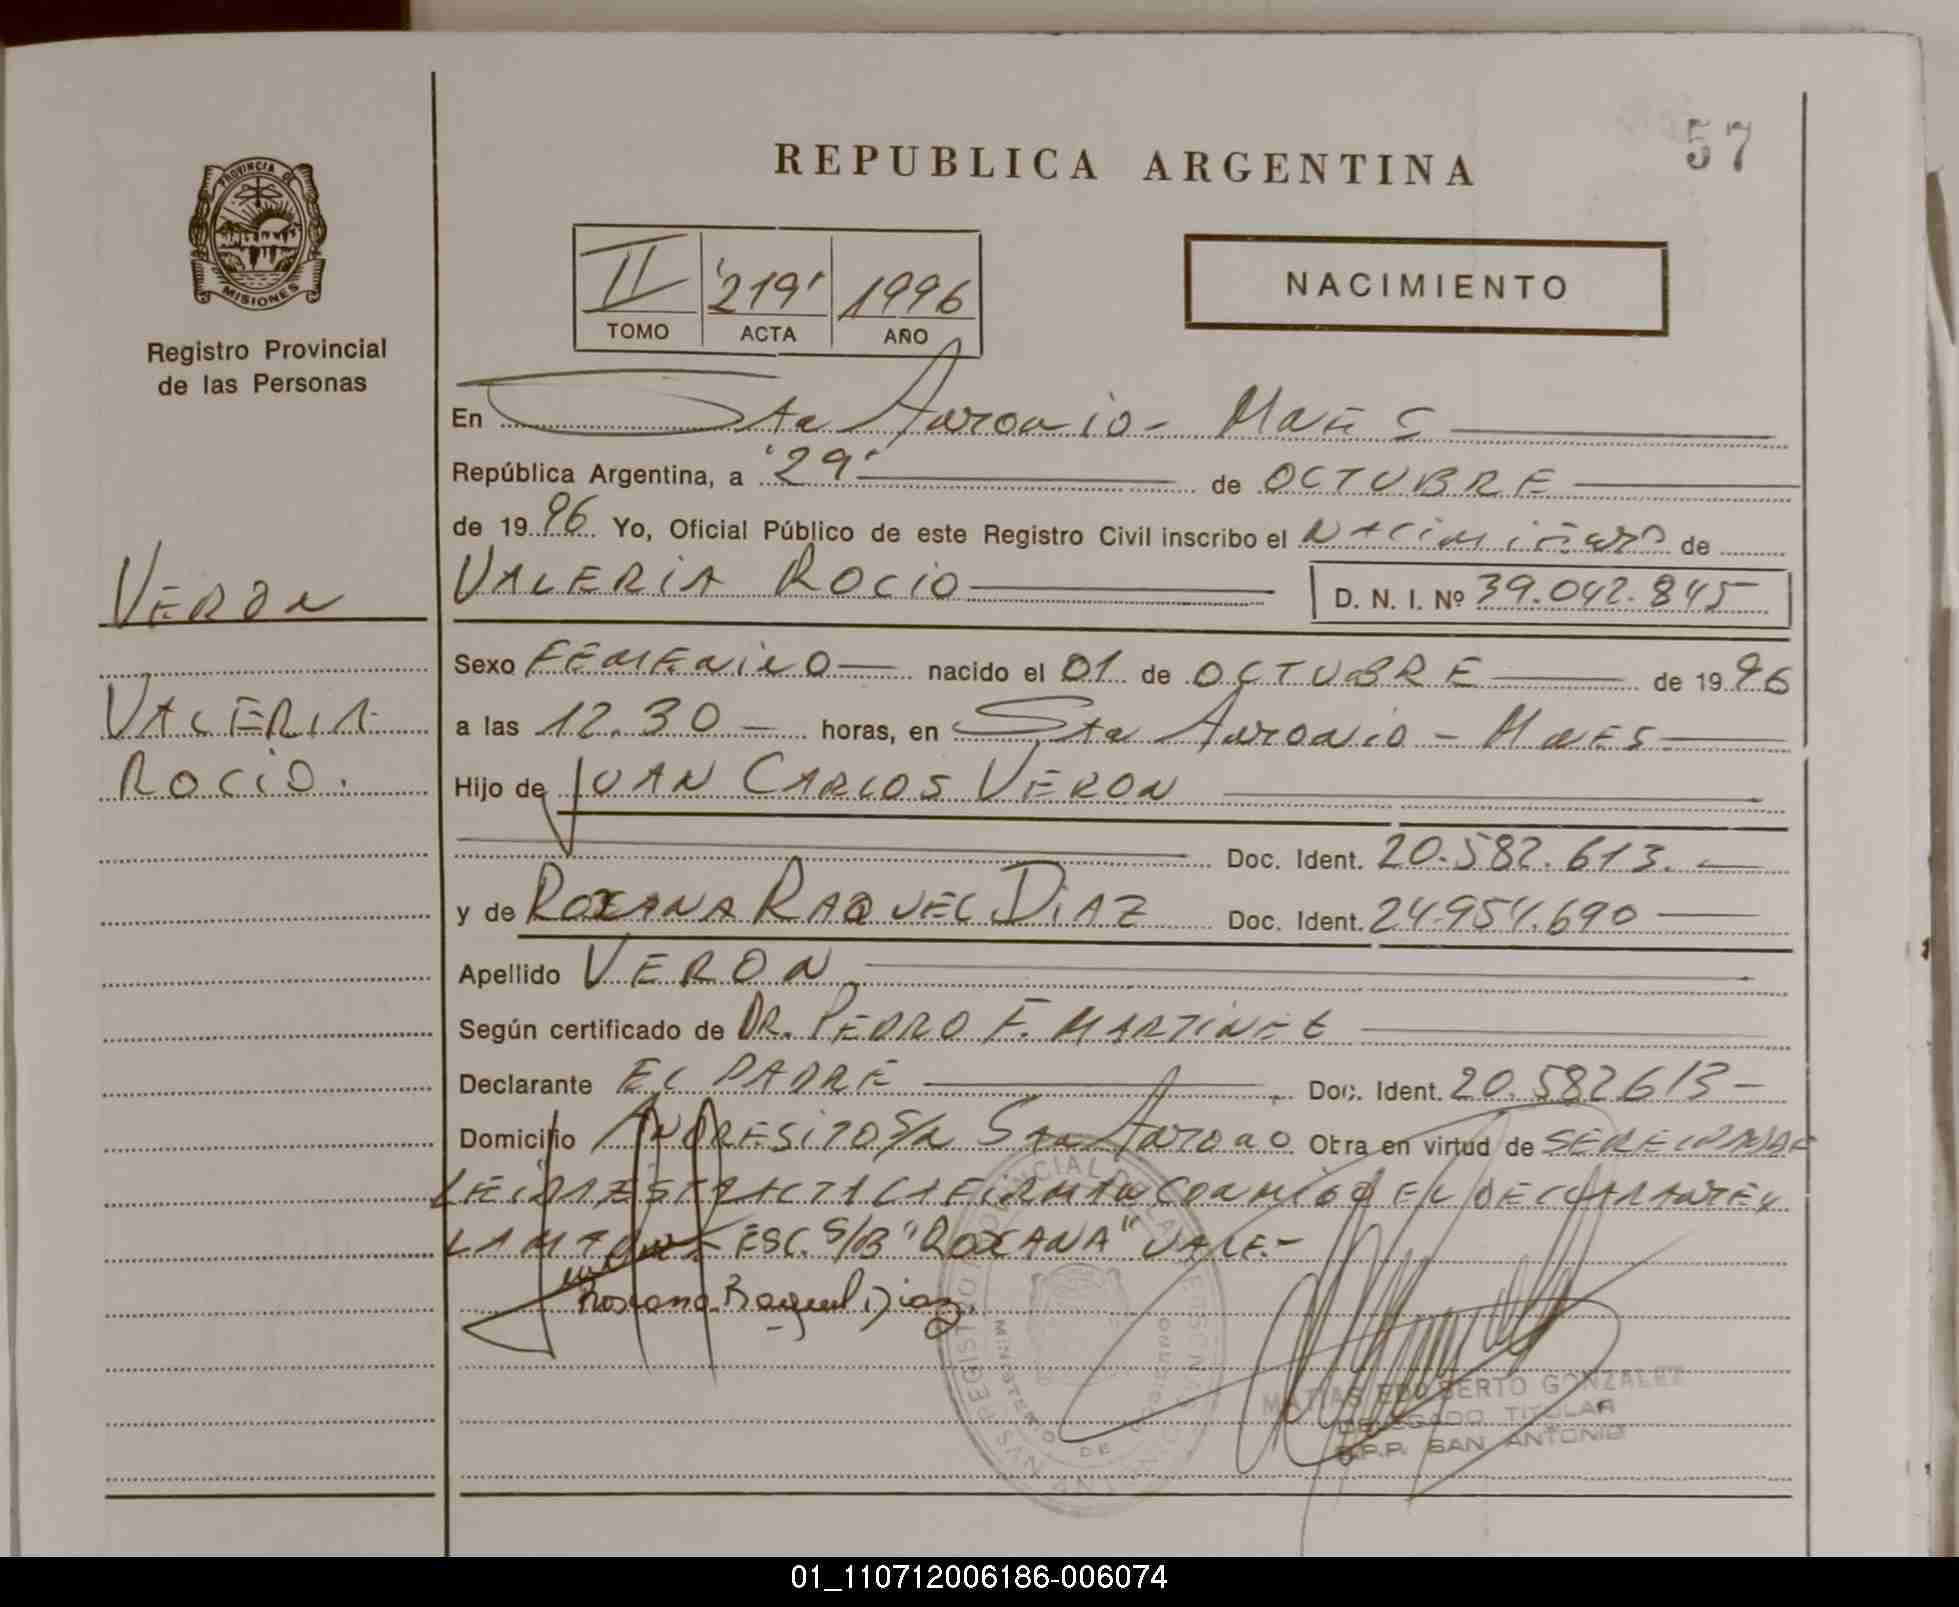 57
REPUBLICA ARGENTINA
PROVINCIA DE
MISIONES
Registro Provincial
de las Personas
II '219' 1996
TOMO ACTA AÑO
NACIMIENTO
En Sn Antonio - Mnes
República Argentina, a '29' de OCTUBRE
de 1996 Yo, Oficial Público de este Registro Civil inscribo el Nacimiento de
VERON
VALERIA ROCIO D. N. I. Nº 39.042.845
Sexo FEMENINO nacido el 01 de OCTUBRE de 1996
VALERIA
a las 12.30 horas, en Sn Antonio - Mnes
ROCIO.
Hijo de JUAN CARLOS VERON
Doc. Ident. 20.582.613.
y de ROXANA RAQUEL DIAZ Doc. Ident. 24.954.690
Apellido VERON
Según certificado de DR. PEDRO F. MARTINEZ
Declarante EL PADRE Doc. Ident. 20.582613
Domicilio ANDRESITO S/N San Antonio Otra en virtud de
LEIDA ESTA ACTA LA FIRMAN CONMIGO EL DECLARANTE Y
LA MADRE ESC. S/B "ROXANA" VALE.-
Roxana Raquel Diaz
REGISTRO PROVINCIAL DE LAS PERSONAS
MINISTERIO DE GOBIERNO
MATIAS EDILBERTO GONZALEZ
DELEGADO TITULAR
R.P.P. SAN ANTONIO
01_110712006186-006074